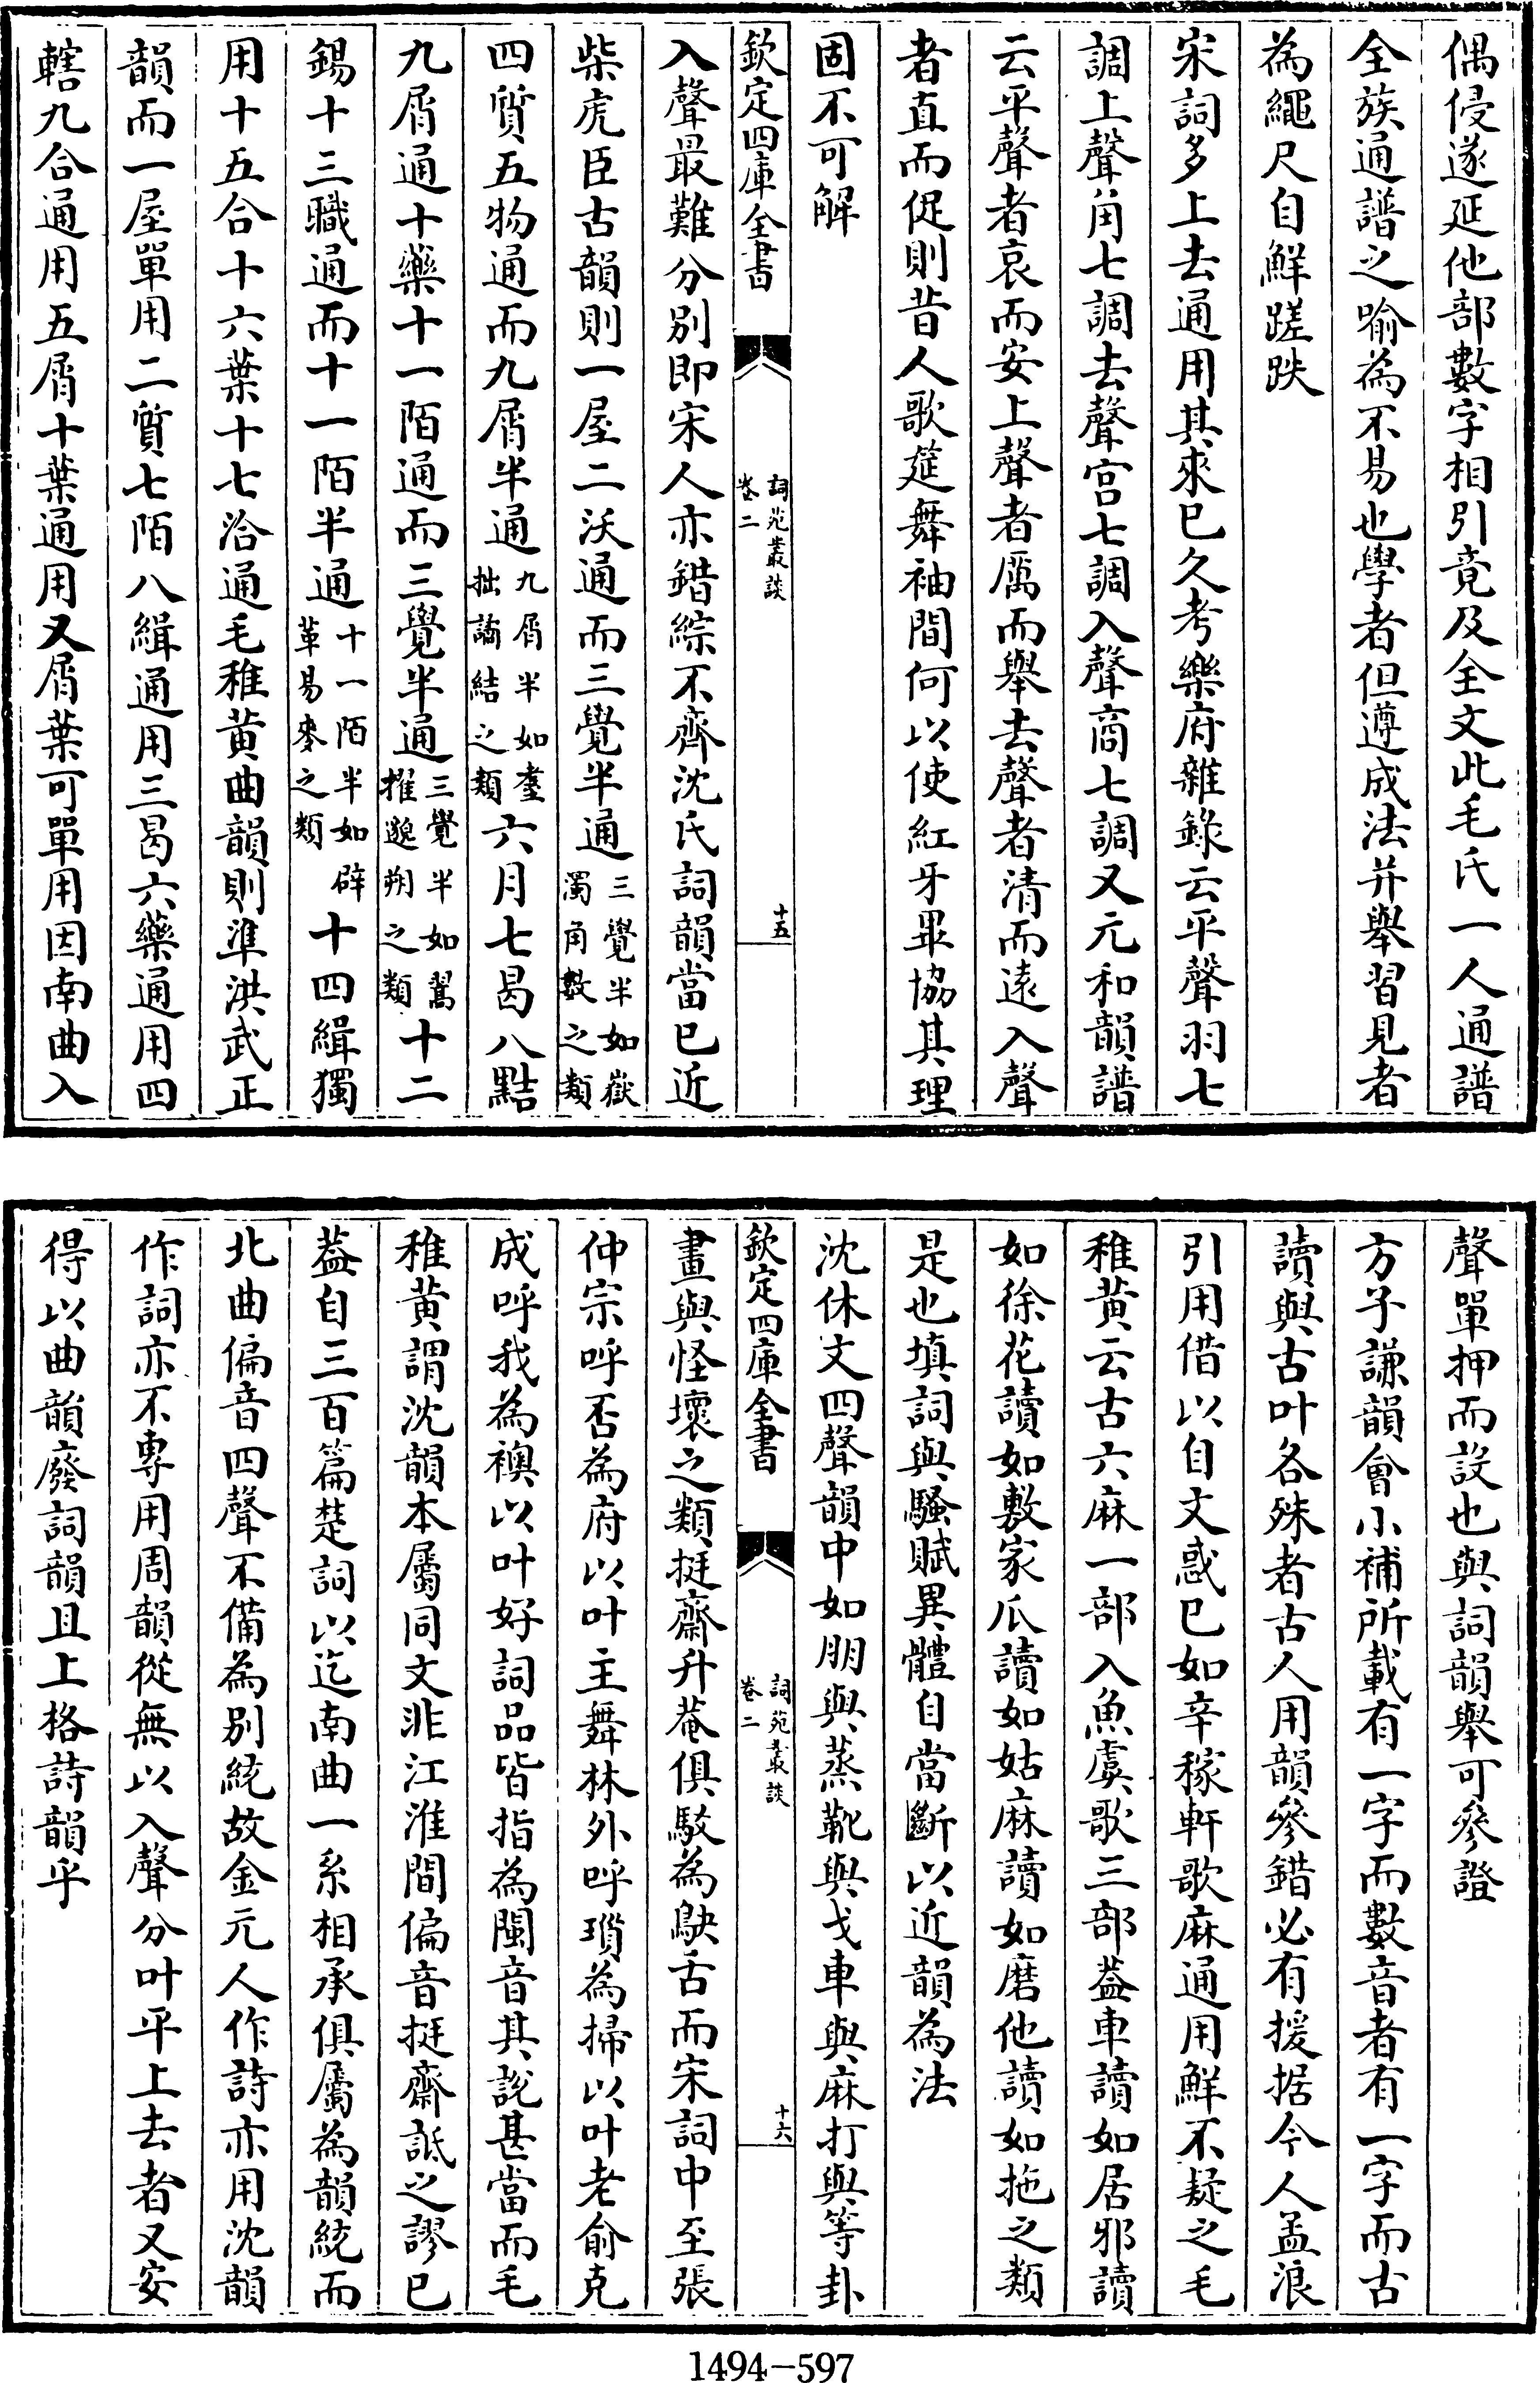 偶侵遂延他部數字相引竟及全文此毛氏一人通譜
全族通譜之喻為不易也學者但遵成法并舉習見者
為繩尺自鮮蹉跌
宋詞多上去通用其來已久考樂府雜錄云平聲羽七
調上聲角七調去聲宮七調入聲商七調又元和韻譜
云平聲者哀而安上聲者厲而舉去聲者清而遠入聲
者直而促則昔人歌筵舞袖間何以使紅牙畢協其理
固不可解
欽定四庫全書
詞苑叢談
卷二
十五
入聲最難分別即宋人亦錯綜不齊沈氏詞韻當已近
柴虎臣古韻則一屋二沃通而三覺半通三覺半如嶽濁角數之類
四質五物通而九屑半通九屑半如耋拙譎結之類六月七曷八黠
九屑通十藥十一陌通而三覺半通三覺半如鷽擢邈朔之類十二
錫十三職通而十一陌半通十一陌半如辟革易麥之類十四緝獨
用十五合十六葉十七洽通毛稚黃曲韻則準洪武正
韻而一屋單用二質七陌八緝通用三曷六藥通用四
轄九合通用五屑十葉通用又屑葉可單用因南曲入
聲單押而設也與詞韻舉可參證
方子謙韻會小補所載有一字而數音者有一字而古
讀與古叶各殊者古人用韻參錯必有援据今人孟浪
引用借以自文惑已如辛稼軒歌麻通用鮮不疑之毛
稚黃云古六麻一部入魚虞歌三部葢車讀如居邪讀
如徐花讀如敷家瓜讀如姑麻讀如磨他讀如拖之類
是也填詞與騷賦異體自當斷以近韻為法
沈休文四聲韻中如朋與蒸靴與戈車與麻打與等卦
欽定四庫全書
詞苑叢談
卷二
十六
畫與怪壞之類挺齋升菴俱駁為鴃舌而宋詞中至張
仲宗呼否為府以叶主舞林外呼瑣為掃以叶老俞克
成呼我為襖以叶好詞品皆指為閩音其說甚當而毛
稚黃謂沈韻本屬同文非江淮間偏音挺齋詆之謬已
葢自三百篇楚詞以迄南曲一系相承俱屬為韻統而
北曲偏音四聲不備為別統故金元人作詩亦用沈韻
作詞亦不專用周韻從無以入聲分叶平上去者又安
得以曲韻廢詞韻且上格詩韻乎
1494-597